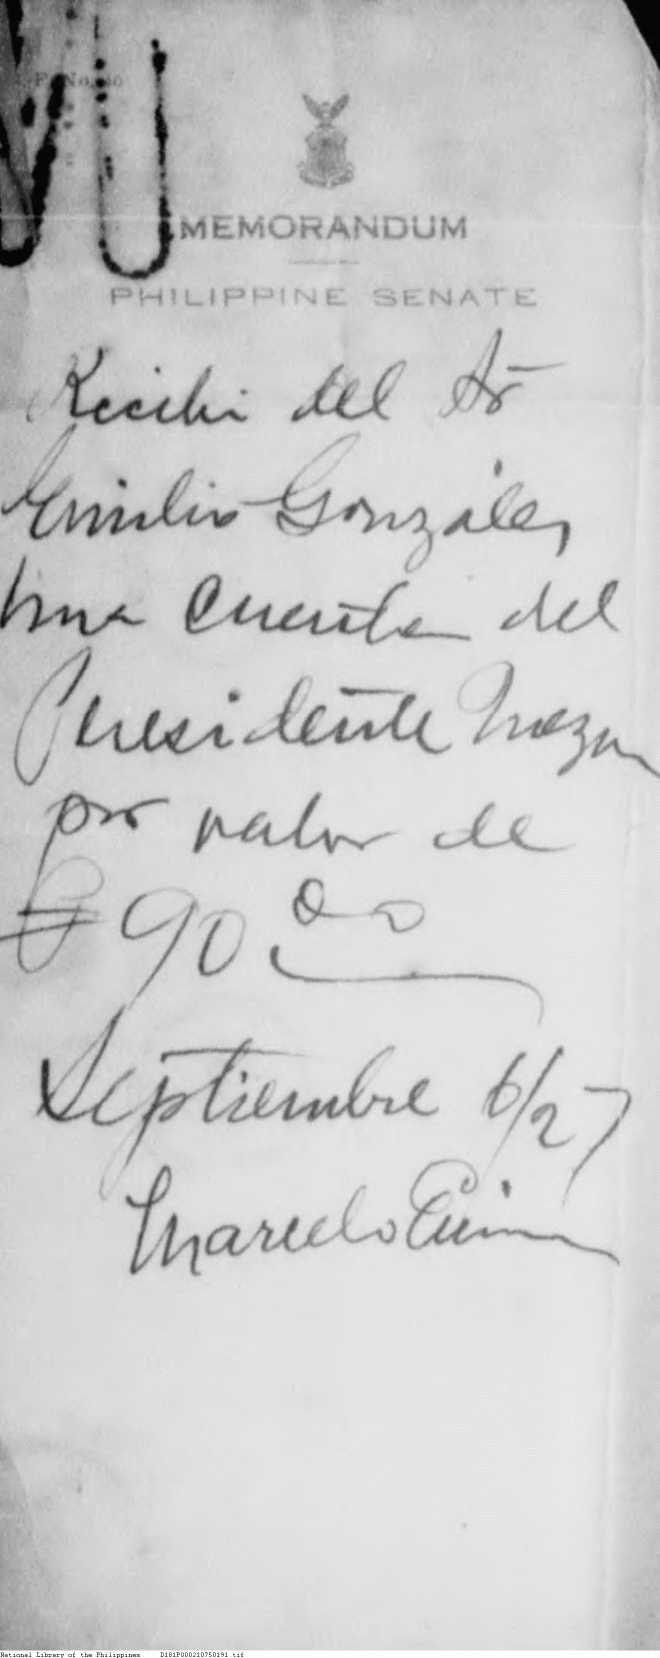 F. No. 
MEMORANDUM
PHILIPPINE SENATE
Recibi del Sr
Emilio González,
una cuenta del
Presidente Quezon
por valor de
₱ 90.00
Septiembre 6/27
Marcelo
National Library of the Philippines D181P000210750191.tif